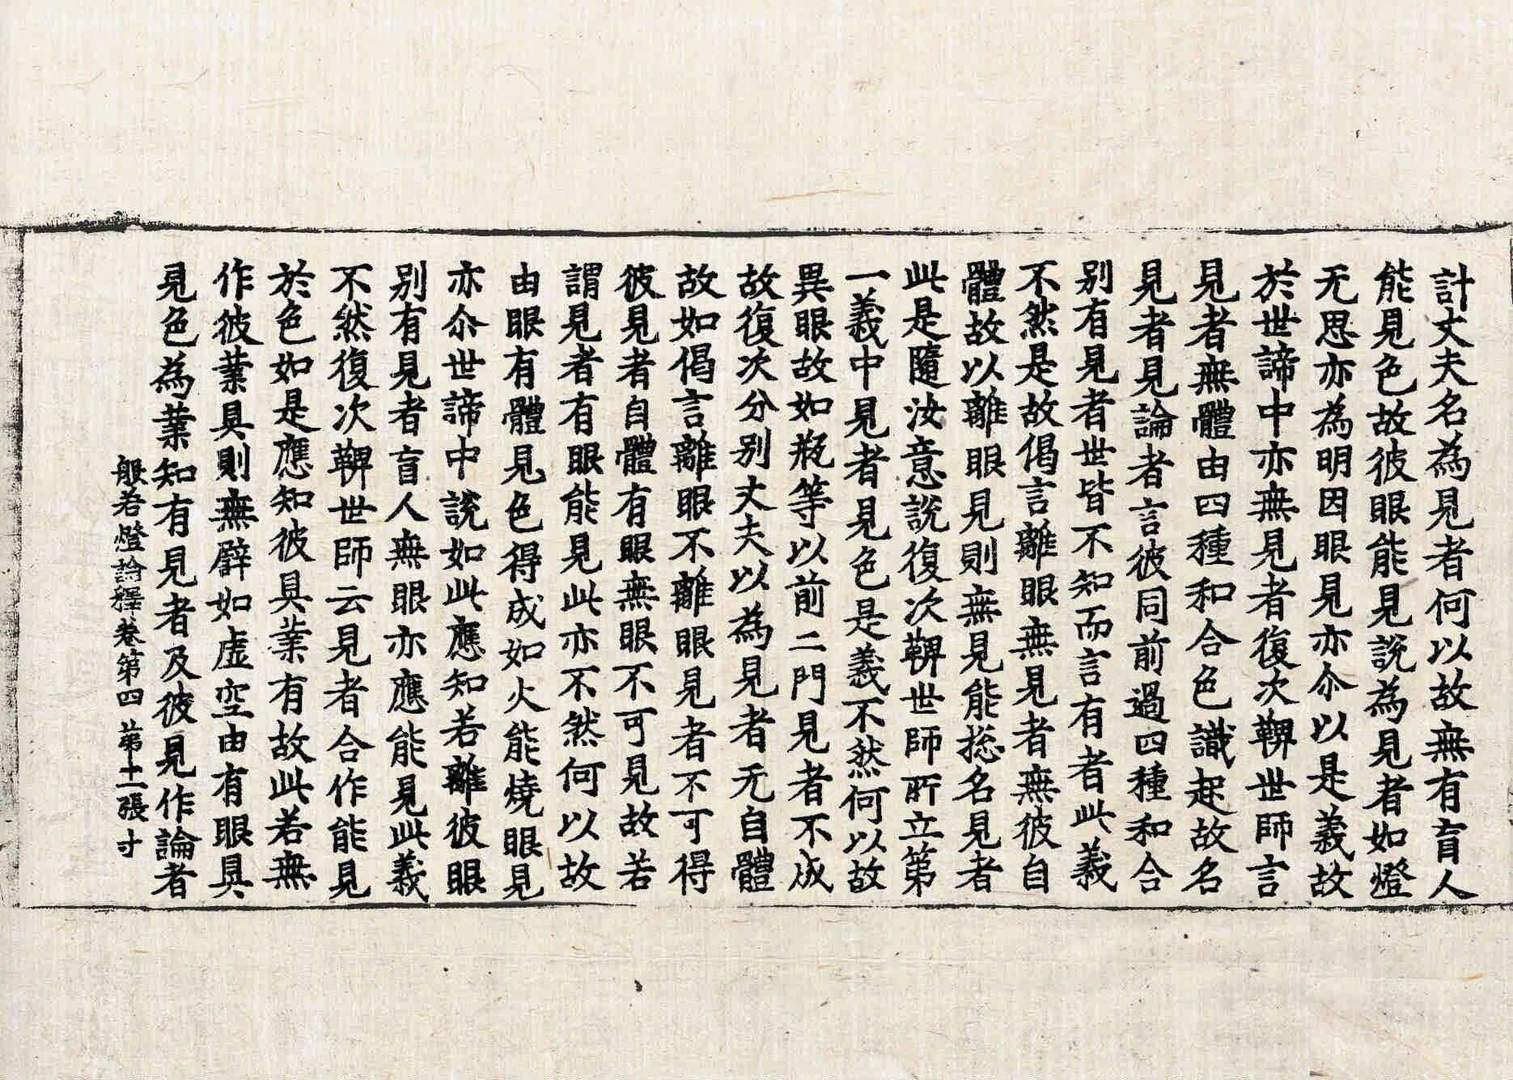 計丈夫名為見者何以故無有盲人
能見色故彼眼能見說為見者如燈
无思亦為明因眼見亦尒以是義故
於世諦中亦無見者復次鞞世師言
見者無體由四種和合色識起故名
見者見論者言彼同前過四種和合
別有見者世皆不知而言有者此義
不然是故偈言離眼無見者無彼自
體故以離眼見則無見能捴名見者
此是隨汝意說復次鞞世師所立第
一義中見者見色是義不然何以故
異眼故如瓶等以前二門見者不成
故復次分別丈夫以為見者无自體
故如偈言離眼不離眼見者不可得
彼見者自體有眼無眼不可見故若
謂見者有眼能見此亦不然何以故
由眼有體見色得成如火能燒眼見
亦尒世諦中說如此應知若離彼眼
別有見者盲人無眼亦應能見此義
不然復次鞞世師云見者合作能見
於色如是應知彼具業有故此若無
作彼業具則無譬如虛空由有眼具
見色為業知有見者及彼見作論者
般若燈論釋卷第四 第十二張 寸